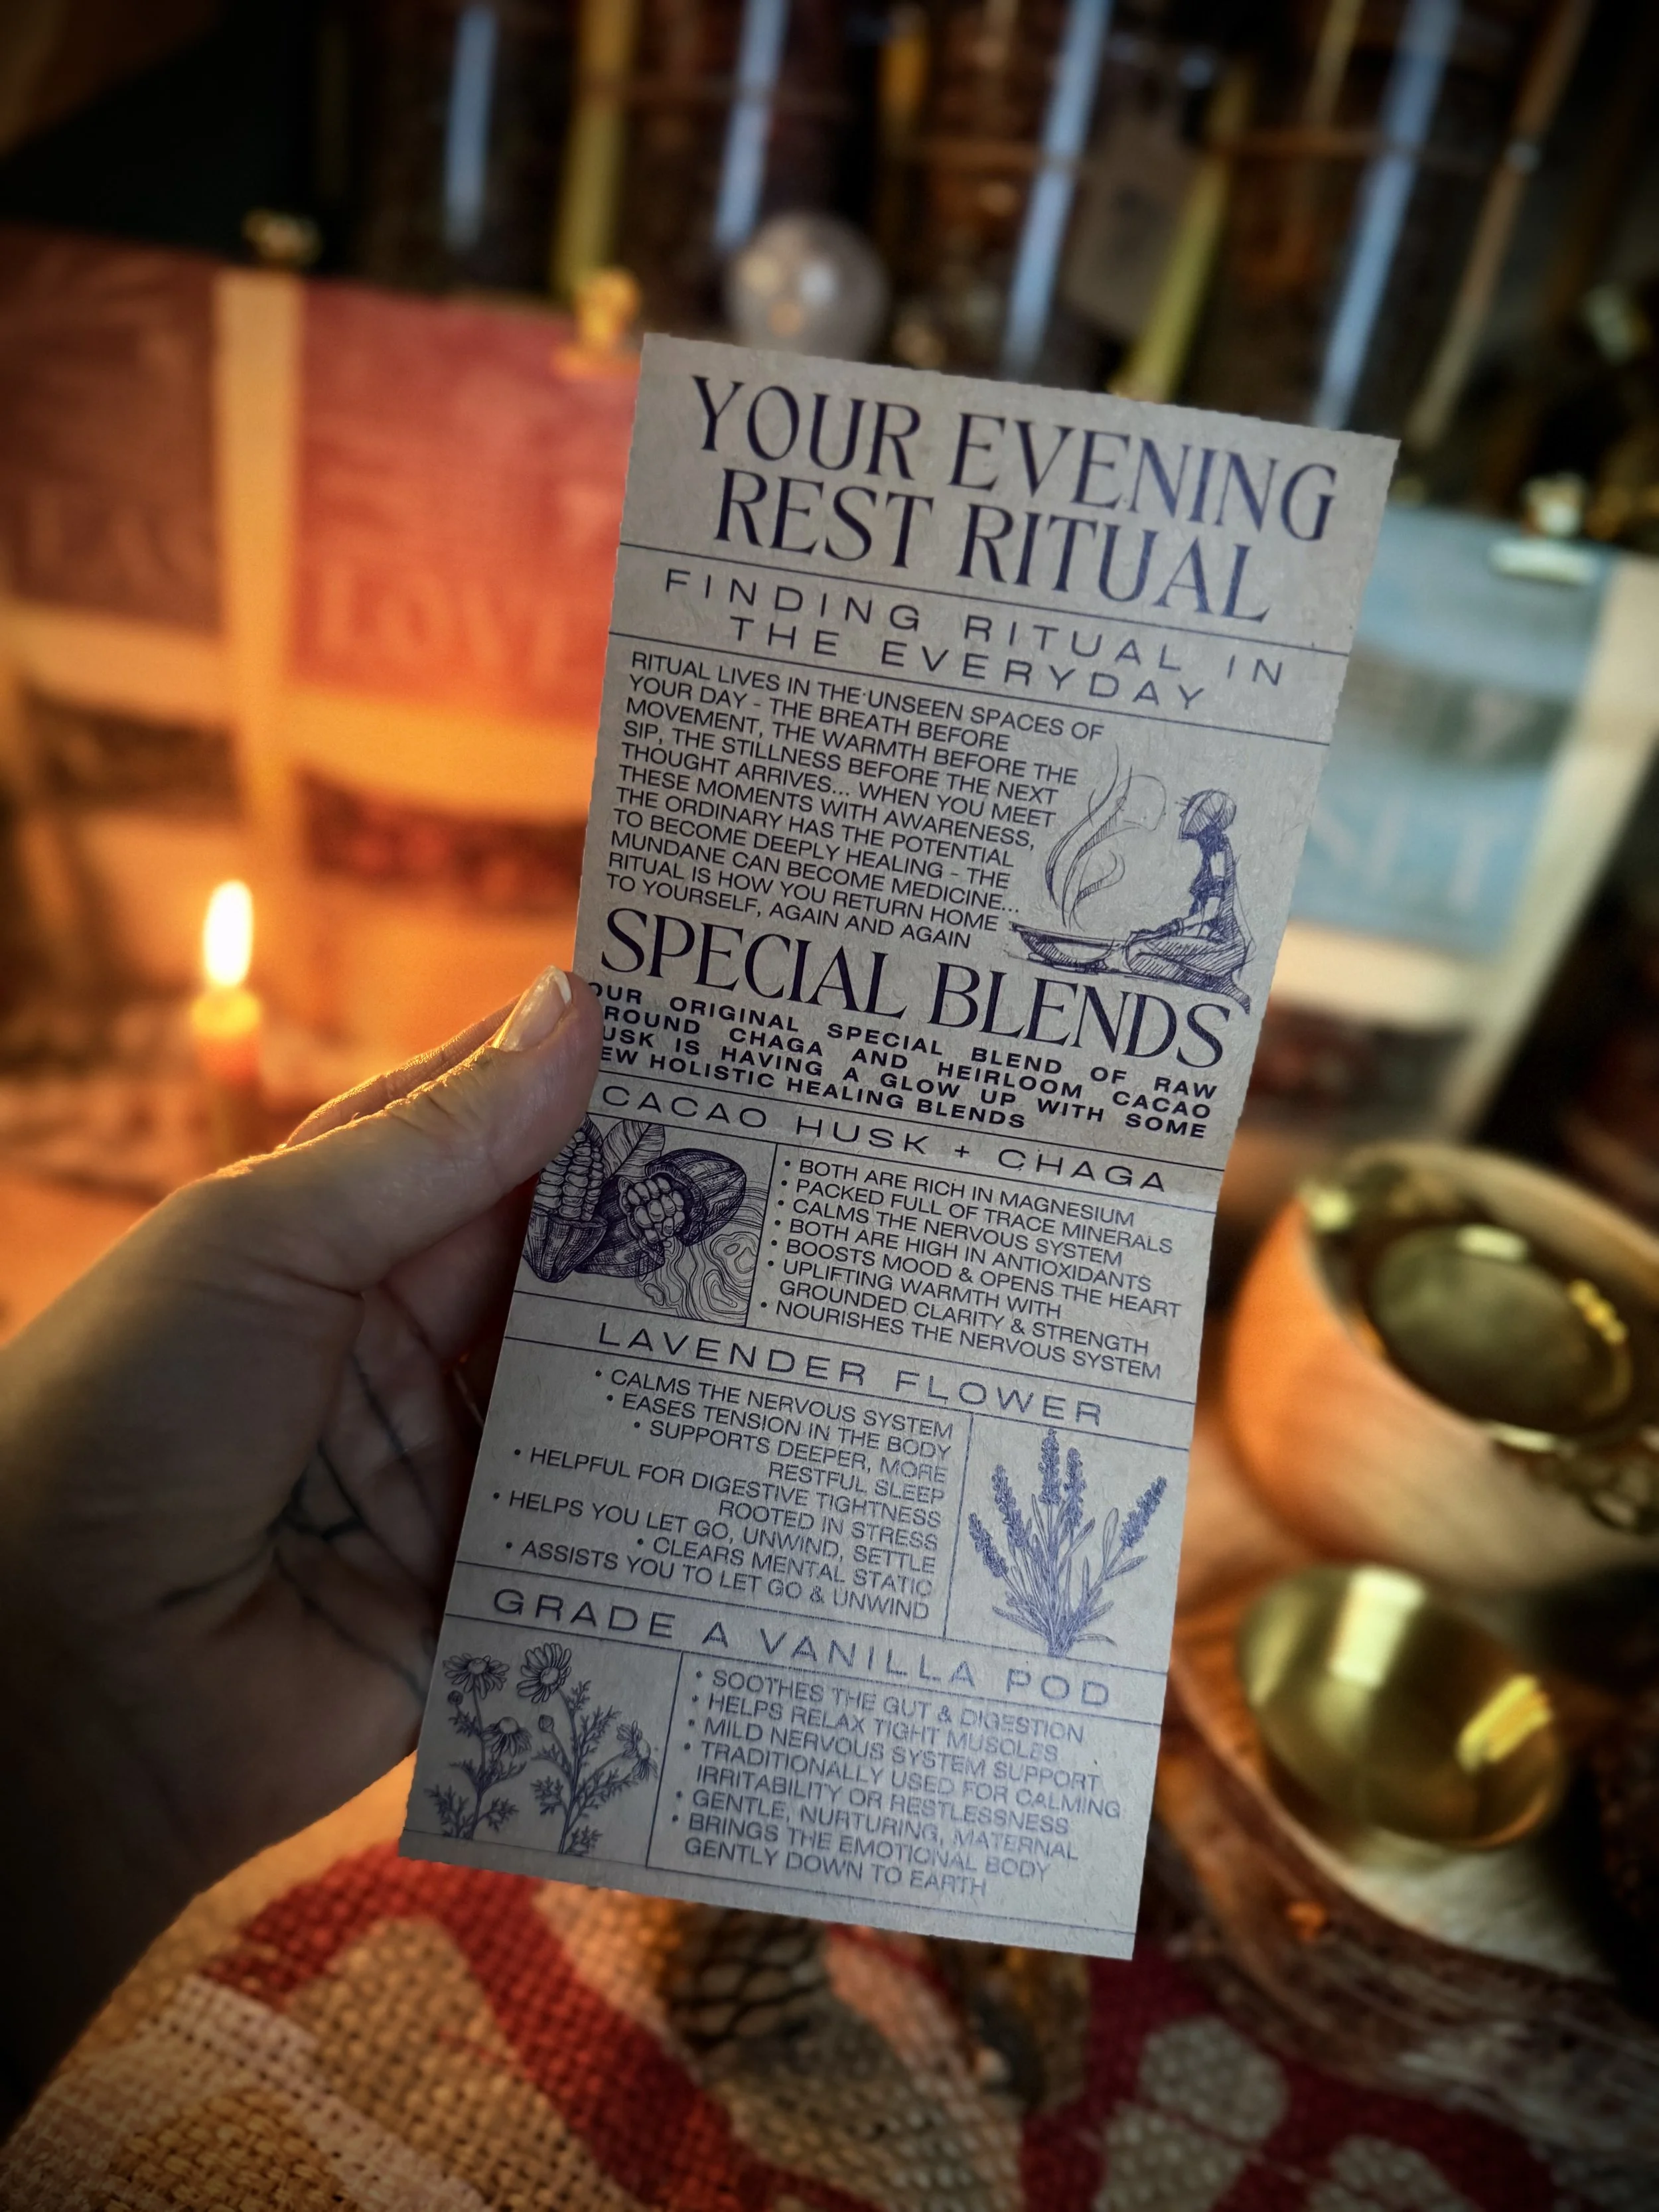 YOUR EVENING
REST RITUAL
FINDING RITUAL IN
THE EVERYDAY
RITUAL LIVES IN THE UNSEEN SPACES OF
YOUR DAY - THE BREATH BEFORE
MOVEMENT, THE WARMTH BEFORE THE
SIP, THE STILLNESS BEFORE THE NEXT
THOUGHT ARRIVES... WHEN YOU MEET
THESE MOMENTS WITH AWARENESS,
THE ORDINARY HAS THE POTENTIAL
TO BECOME DEEPLY HEALING - THE
MUNDANE CAN BECOME MEDICINE...
RITUAL IS HOW YOU RETURN HOME
TO YOURSELF, AGAIN AND AGAIN
SPECIAL BLENDS
OUR ORIGINAL SPECIAL BLEND OF RAW
ROUND CHAGA AND HEIRLOOM CACAO
USK IS HAVING A GLOW UP WITH SOME
EW HOLISTIC HEALING BLENDS
CACAO HUSK + CHAGA
• BOTH ARE RICH IN MAGNESIUM
• PACKED FULL OF TRACE MINERALS
• CALMS THE NERVOUS SYSTEM
• BOTH ARE HIGH IN ANTIOXIDANTS
• BOOSTS MOOD & OPENS THE HEART
• UPLIFTING WARMTH WITH
GROUNDED CLARITY & STRENGTH
• NOURISHES THE NERVOUS SYSTEM
LAVENDER FLOWER
• CALMS THE NERVOUS SYSTEM
• EASES TENSION IN THE BODY
• SUPPORTS DEEPER, MORE
RESTFUL SLEEP
• HELPFUL FOR DIGESTIVE TIGHTNESS
ROOTED IN STRESS
• HELPS YOU LET GO, UNWIND, SETTLE
• CLEARS MENTAL STATIC
• ASSISTS YOU TO LET GO & UNWIND
GRADE A VANILLA POD
• SOOTHES THE GUT & DIGESTION
• HELPS RELAX TIGHT MUSCLES
• MILD NERVOUS SYSTEM SUPPORT
• TRADITIONALLY USED FOR CALMING
IRRITABILITY OR RESTLESSNESS
• GENTLE, NURTURING, MATERNAL
• BRINGS THE EMOTIONAL BODY
GENTLY DOWN TO EARTH
LOVE